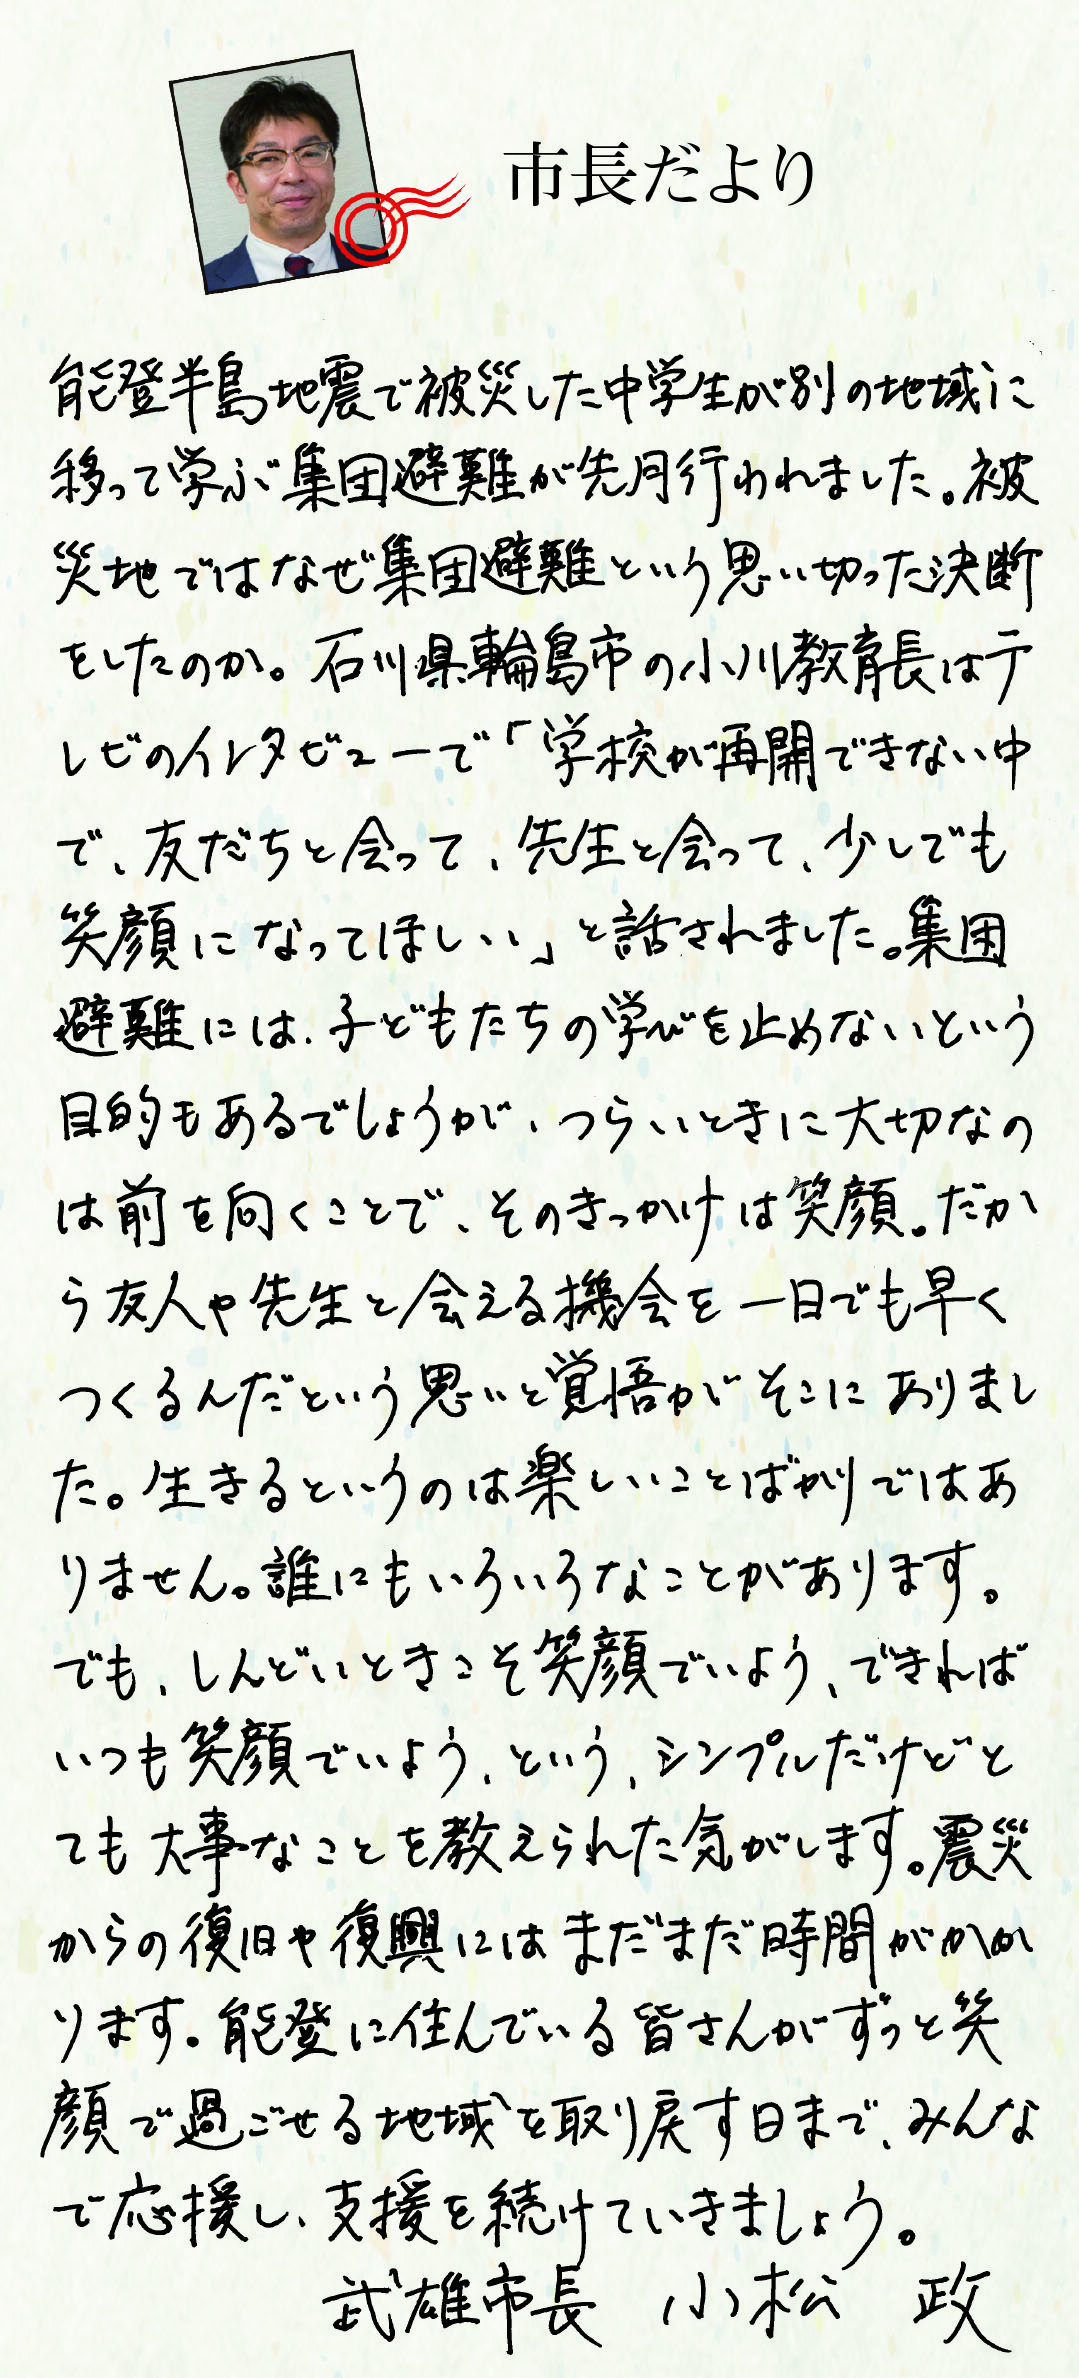 市長だより
能登半島地震で被災した中学生が別の地域に
移って学ぶ集団避難が先月行われました。被
災地ではなぜ集団避難という思い切った決断
をしたのか。石川県輪島市の小川教育長はテ
レビのインタビューで「学校が再開できない中
で、友だちと会って、先生と会って、少しでも
笑顔になってほしい」と話されました。集団
避難には、子どもたちの学びを止めないという
目的もあるでしょうが、つらいときに大切なの
は前を向くことで、そのきっかけは笑顔。だか
ら友人や先生と会える機会を一日でも早く
つくるんだという思いと覚悟がそこにありまし
た。生きるというのは楽しいことばかりではあ
りません。誰にもいろいろなことがあります。
でも、しんどいときこそ笑顔でいよう、できれば
いつも笑顔でいよう、という、シンプルだけどと
ても大事なことを教えられた気がします。震災
からの復旧や復興にはまだまだ時間がかか
ります。能登に住んでいる皆さんがずっと笑
顔で過ごせる地域を取り戻す日まで、みんな
で応援し、支援を続けていきましょう。
武雄市長 小松 政